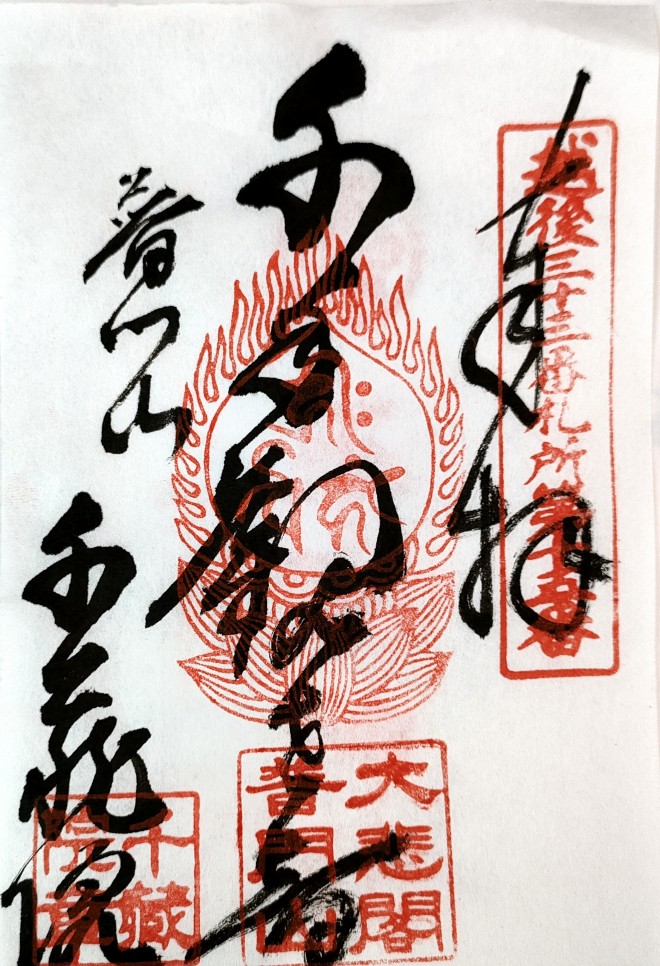 越後三十三番札所第十五番
奉拝
千手観世音
普門山
千蔵院
大悲閣
普門山
千蔵
院